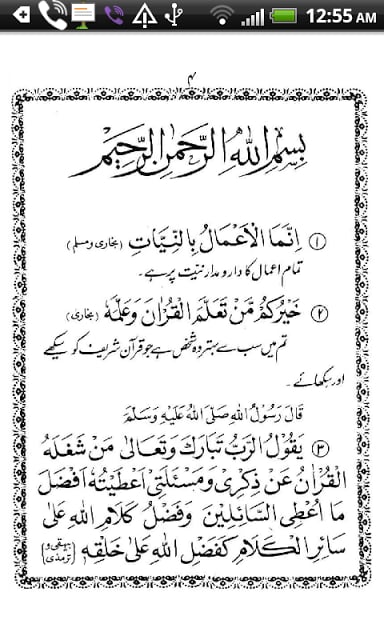 12:55 AM
۴
بِسْمِ اللّٰهِ الرَّحْمٰنِ الرَّحِيْمِ
① اِنَّمَا الْاَعْمَالُ بِالنِّيَّاتِ (بخاری و مسلم)
تمام اعمال کا دارومدار نیت پر ہے۔
② خَيْرُكُمْ مَّنْ تَعَلَّمَ الْقُرْاٰنَ وَعَلَّمَهٗ (بخاری)
تم میں سب سے بہتر وہ شخص ہے جو قرآن شریف کو سیکھے
اور سکھائے۔
قَالَ رَسُوْلُ اللهِ صَلَّى اللهُ عَلَيْهِ وَسَلَّمَ
③ يَقُوْلُ الرَّبُّ تَبَارَكَ وَتَعَالٰى مَنْ شَغَلَهُ
الْقُرْاٰنُ عَنْ ذِكْرِيْ وَمَسْئَلَتِيْ اَعْطَيْتُهٗ اَفْضَلَ
مَا اُعْطِى السَّائِلِيْنَ وَفَضْلُ كَلَامِ اللهِ عَلٰى
سَائِرِ الْكَلَامِ كَفَضْلِ اللهِ عَلٰى خَلْقِهٖ (بیہقی و ترمذی)